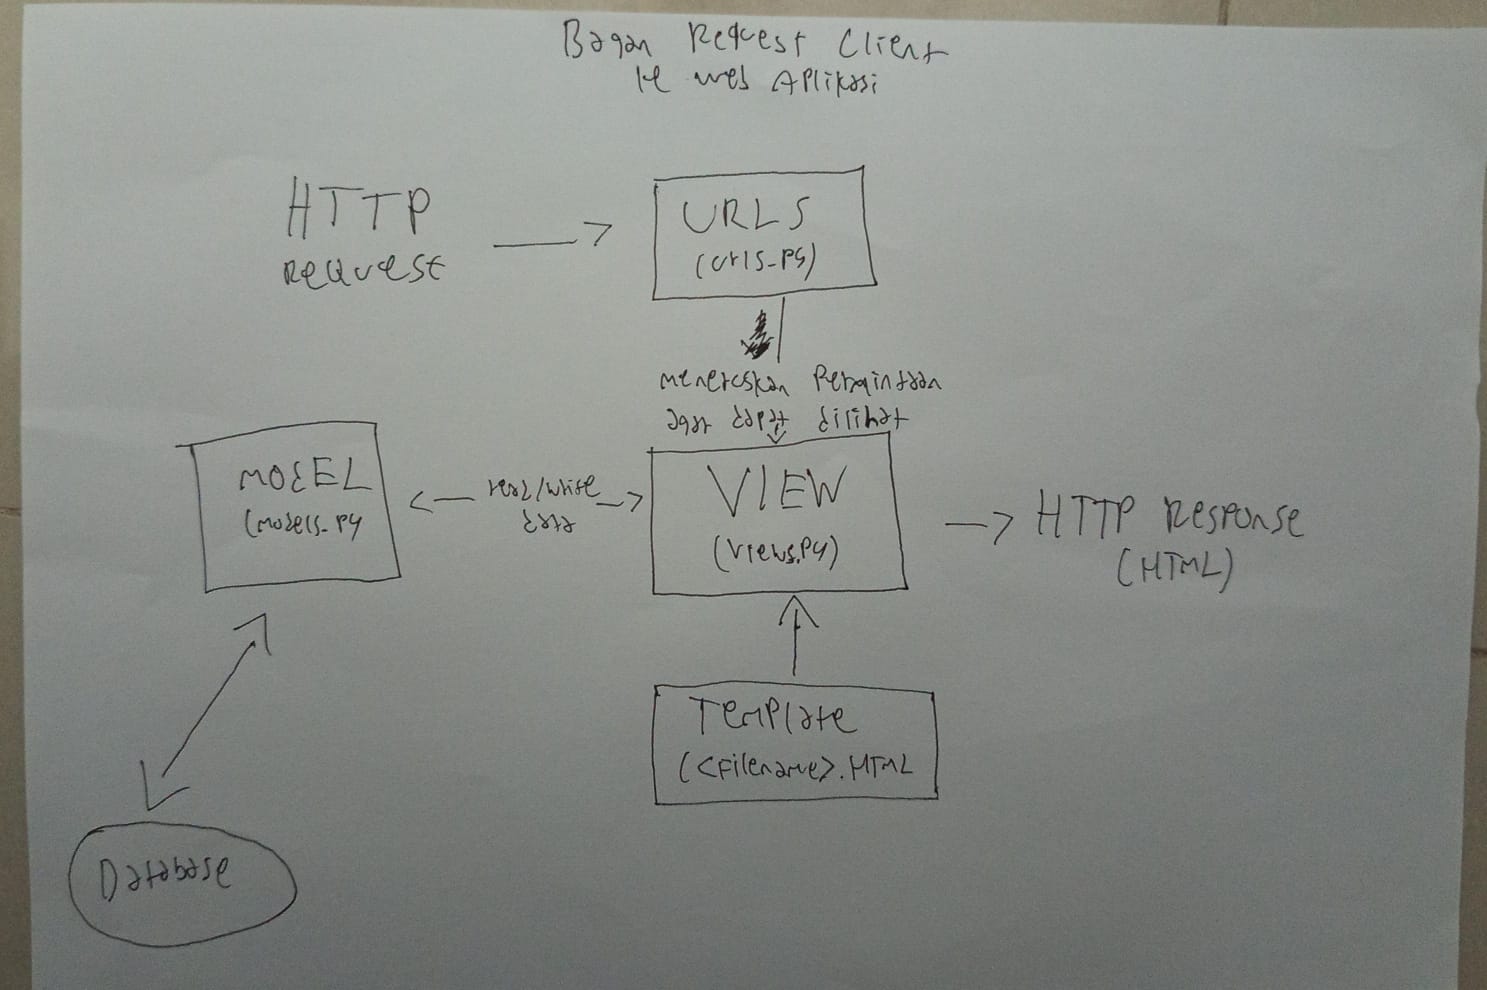 Bagan Request Client
Ke Web Aplikasi
HTTP
Request
URLS
(urls.py)
Meneruskan Permintaan
agar dapat dilihat
MODEL
(models.py
read/write
data
VIEW
(views.py)
HTTP Response
(HTML)
Template
(<Filename>.HTML
Database